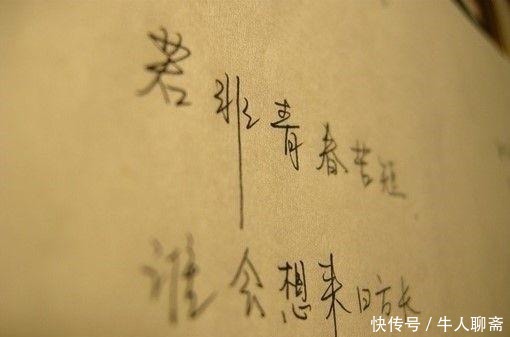 若非青春苦短
谁会想来日方长
快传号/牛人聊斋